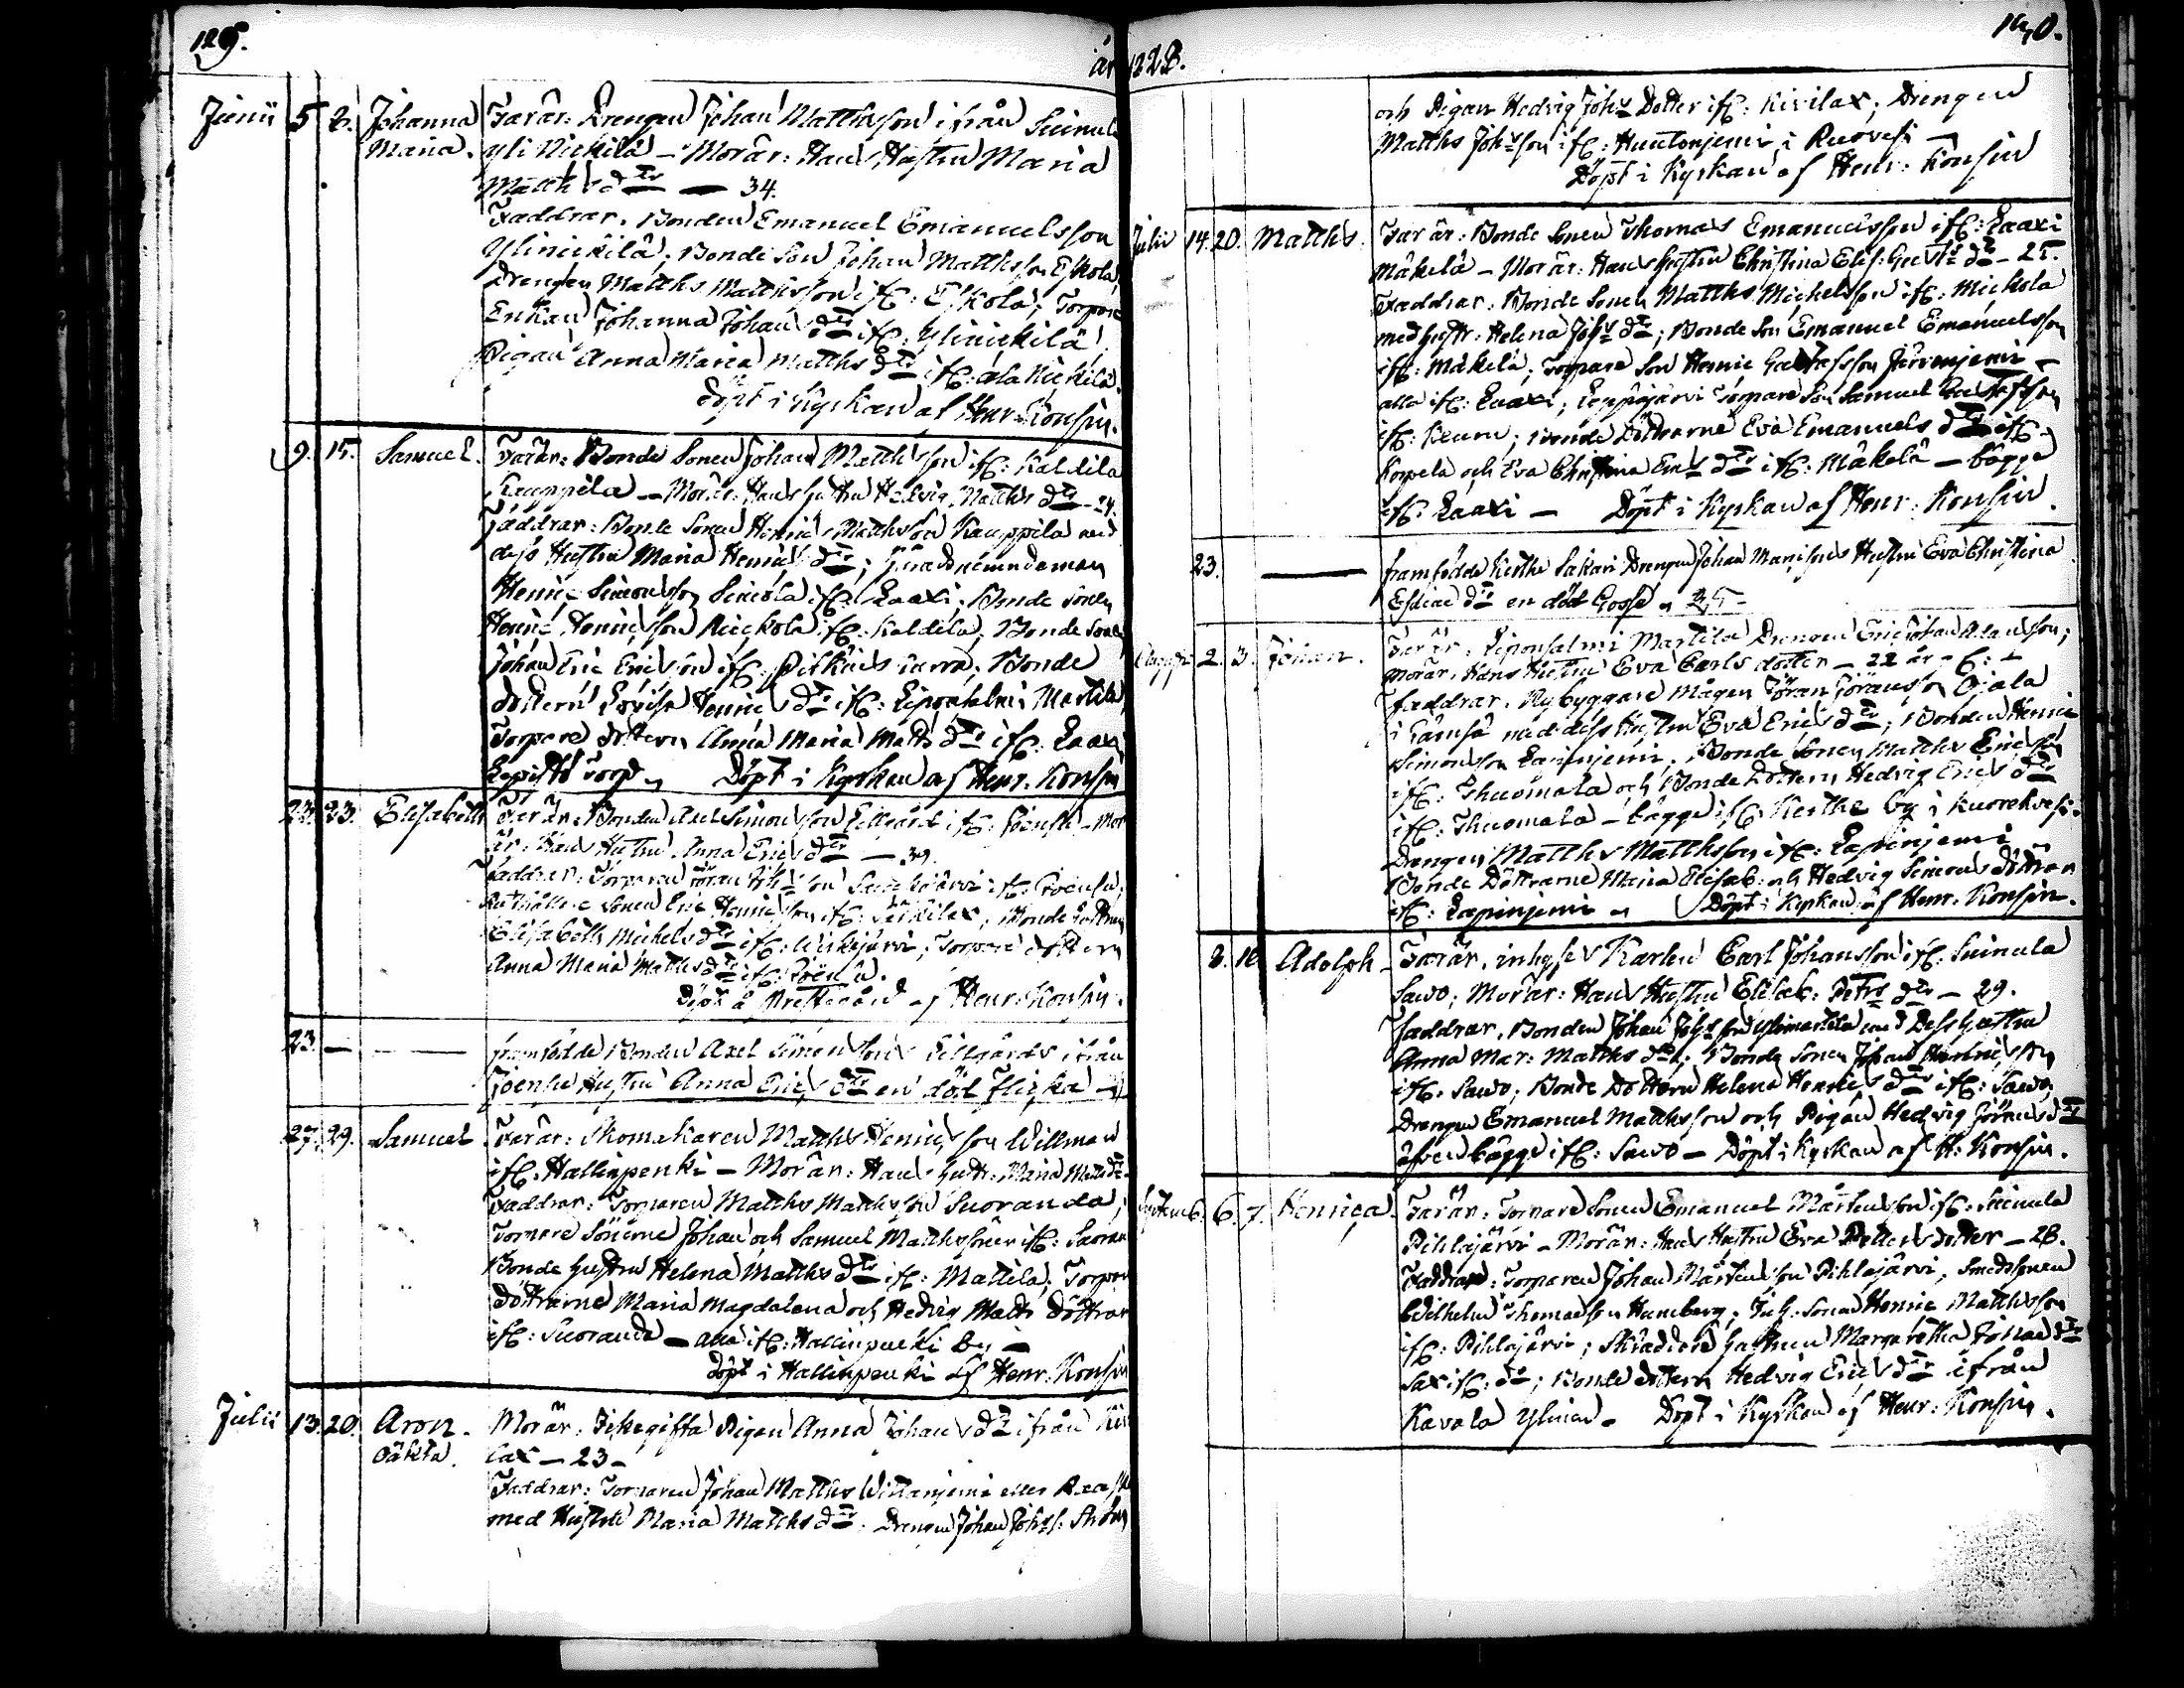 129.
år 1828.
140.
Junii 5 8. Johanna Maria.
Far är: Drengen Johan Matthsson ifrån Suinula
Yli Nickilä – Mor är: Hans Hustru Maria
Matths dtr — 34.
Faddrar. Bonden Emanuel Emanuelsson
Ylinickilä; Bonde Son Johan Matthsson Eskola
Drengen Matths Matthsson if: Eskola; Torpare
Enkan Johanna Johans dtr if: Ylinickilä
Pigan Anna Maria Matths dtr if: ala Nickilä.
Döpt i Kyrkan af Henr: Konsin.
9. 15. Samuel.
Far är: Bonde Sonen Johan Matthsson if: Kaldila
Kauppila – Mor är: Hans Hustru Hedvig Matths dtr – 24.
Faddrar: Bonde Sonen Henric Matthsson Kauppila med
dess Hustru Maria Henrics dtr; Häradsnämndeman
Henric Simonsson Simola if: Laaxi; Bonde Sonen
Henric Henricsson if: Kaldila; Bonde Sonen
Johan Eric Ericsson if: Bonde
dottern Lovisa Henrics dtr if: Liponsalmi Martila
Torpare dottern Anna Maria Matts dtr if: Laaxi
Lepistö Torp. Döpt i Kyrkan af Henr. Konsin
22. 23. Elisabeth
Far är: Bonden Axel Simonsson Lillgård if: Joensu – Mor
är: Hans Hustru Anna Erics dtr — 39.
Faddrar: Torparen Göran if: Joensu;
Sonen Eric Henricsson if: Bonde Dottren
Elisabeth Michels dtr if: Torpare dottern
Anna Maria Matths dtr if: Joensu.
Döpt å Prestegård af Henr: Konsin.
23. — —
framfödde Bonden Axel Simonssons Lillgårds ifrån
Joensu Hustru Anna Erics dtr en död flicka –
27. 29. Samuel
Far är: Skomakaren Matths Henricsson Willman
if: Hallinpenki – Mor är: Hans Hustr: Maria Matts dtr
Faddrar: Torparen Matths Matthsson Suoranda;
Torpare Sönerne Johan och Samuel Matthssöner if: Suoran
Bonde Hustru Helena Matths dtr if: Mattila; Torpare
döttrarne Maria Magdalena och Hedvig Matts döttrar
if: Suoranda – alla if: Hallinpenki By –
Döpt i Hallinpenki af Henr: Konsin
Julii 13. 20. Aron. Oäkta.
Mor är: Ickegifta Pigan Anna Johans dtr ifrån Kivi
lax – 23 –
Faddrar: Torparen Johan Matths eller
med Hustru Maria Matths dtr; Drengen Johan Johss:
och Pigan Hedvig Johs Dotter if: Kivilax; Drengen
Matths Johsson if: Huutonjemi i Ruovesi –
Döpt i Kyrkan af Henr: Konsin
Julii 14. 20. Matths.
Far är: Bonde Sonen Thomas Emanuelsson if: Laaxi
Mäkelä – Mor är: Hans Hustru Christina Elis: Gusts dtr – 25.
Faddrar: Bonde Sonen Matths Michelsson if: Mickola
med hustr: Helena Johs dtr; Bonde Son Emanuel Emanuelsson
if: Mäkelä; Torpare Son Henric Gustafsson Järvenjemi –
alla if: Laaxi; Torpare Son Samuel Gustafsson
if: Keuru; Bonde Döttrarne Eva Emanuels dtr if:
Korpela och Eva Christina Em:s dtr if: Mäkelä – bägge
if: Laaxi – Döpt i Kyrkan af Henr: Konsin.
23. —
framfödde Kerthe Sakari Drengen Johan Hustru Eva Christina
dtr en död Gosse
Augusti 2. 3.
Far är: Liponsalmi Martila Drengen Eric Johan
Mor är: Hans Hustru Eva Carls dotter – 22 år –
Faddrar. Nybyggare Mågen Jöran Jöransson Ojala
i Jämsä med dess Hustru Eva Erics dtr; Bonden Henric
Simonsson Lapinjemi; Bonde Sonen Matths Ericsson
if: Thuomala och Bonde Dottern Hedvig Erics dtr
if: Thuomala – bägge if: Kerthe By i Kuorehvesi.
Drengen Matths Matthsson if: Lapinjemi
Bonde Döttrarne Maria Elisab: och Hedvig Simons döttrar
if: Lapinjemi – Döpt i Kyrkan af Henr. Konsin.
8. 10. Adolph
Far är. inhyses Karlen Carl Johansson if: Suinula
Sawo; Mor är: Hans Hustru Elisab: Petrs dtr – 29.
Faddrar. Bonden Johan Johsson Ylimartila med Dess Hustru
Anna Mar: Matths dtr; Bonde Sonen Johan Henricsson
if: Sawo; Bonde Dottern Helena Henrics dtr if: Sawo;
Drengen Emanuel Matthsson och Pigan Hedvig Jörans dtr
äfven bägge if: Sawo – Döpt i Kyrkan af H: Konsin.
Septemb. 6. 7. Henrica.
Far är: Torpare Sonen Emanuel Mårtensson if: Suinula
Pihlajärvi – Mor är: Hans Hustru Eva Petters dotter – 28.
Faddrar: Torparen Johan Mårtensson Pihlajärvi; Smedssonen
Wilhelm Thomasson Humberg; Sonen Henric Matthsson
if: Pihlajärvi; Skräddare Hustrun Margaretha Johans dtr
Sax if: do; Bonde dottern Hedvig Erics dtr ifrån
Kavala Ylinen – Döpt i Kyrkan af Henr: Konsin.